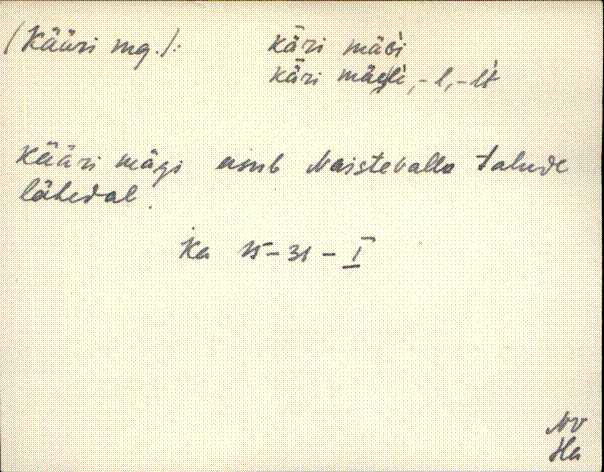 (Kääri mg.): käri mäɢi
käri mäɢlè, -l, -lt
Kääri mägi asub Naistevalla talude
lähedal.
Ka 15-31-I
NV
Ha